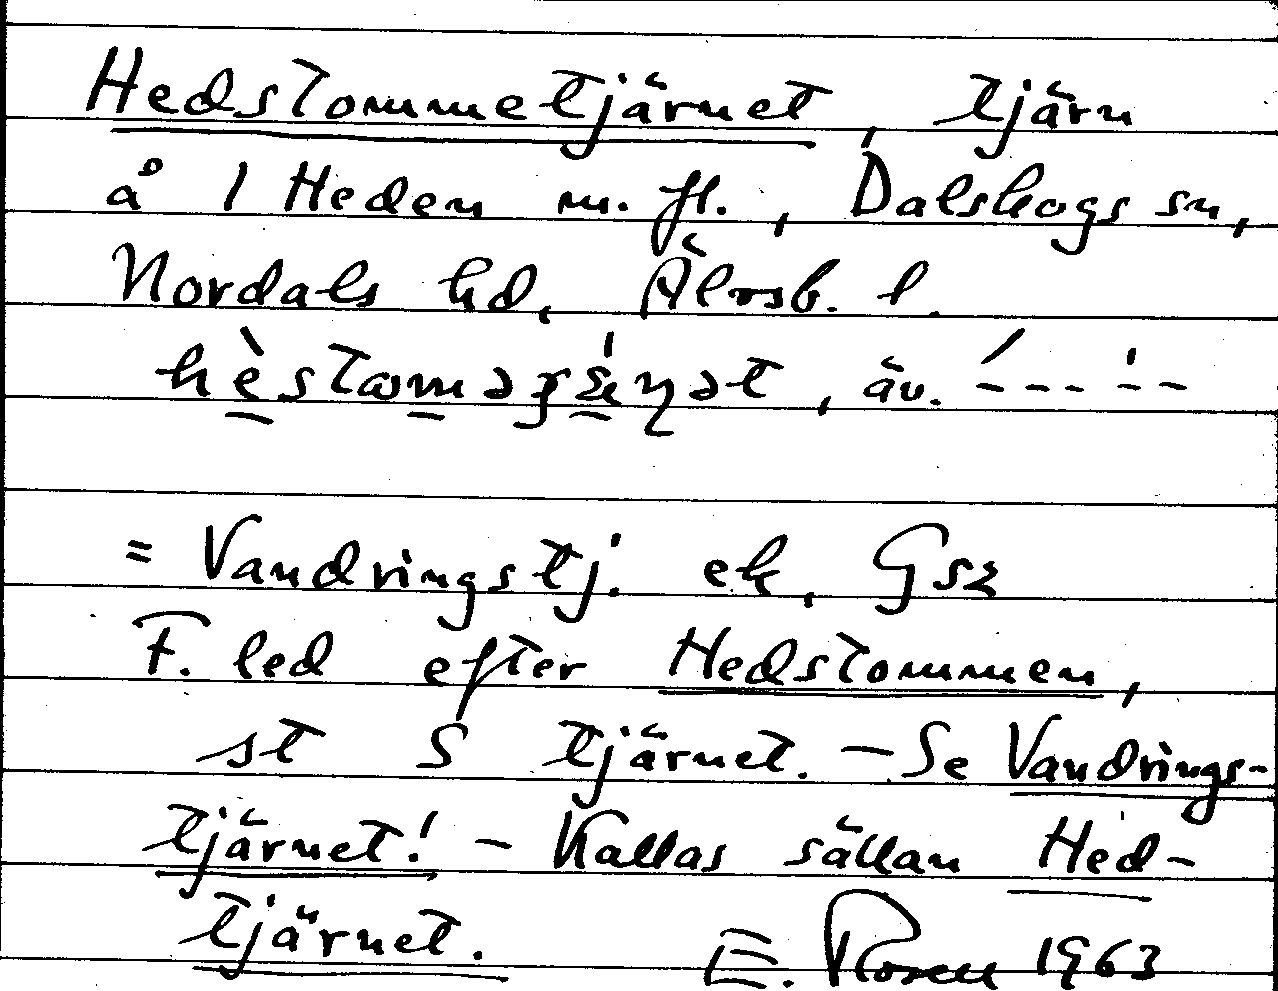 Hedstommetjärnet, tjärn
å 1 Heden m.fl., Dalskogs sn,
Nordals hd, Älvsb. l.
äv.
= Vandringstj. ek, Gsz
F. led efter Hedstommen,
st S tjärnet. – Se Vandrings-
tjärnet! – Kallas sällan Hed-
tjärnet. E. Rosen 1963